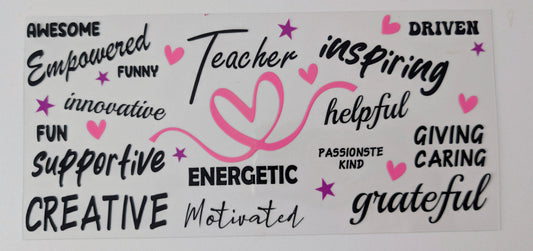 AWESOME
Empowered
FUNNY
innovative
FUN
supportive
CREATIVE
Teacher
ENERGETIC
Motivated
DRIVEN
inspiring
helpful
GIVING
CARING
PASSIONSTE
KIND
grateful